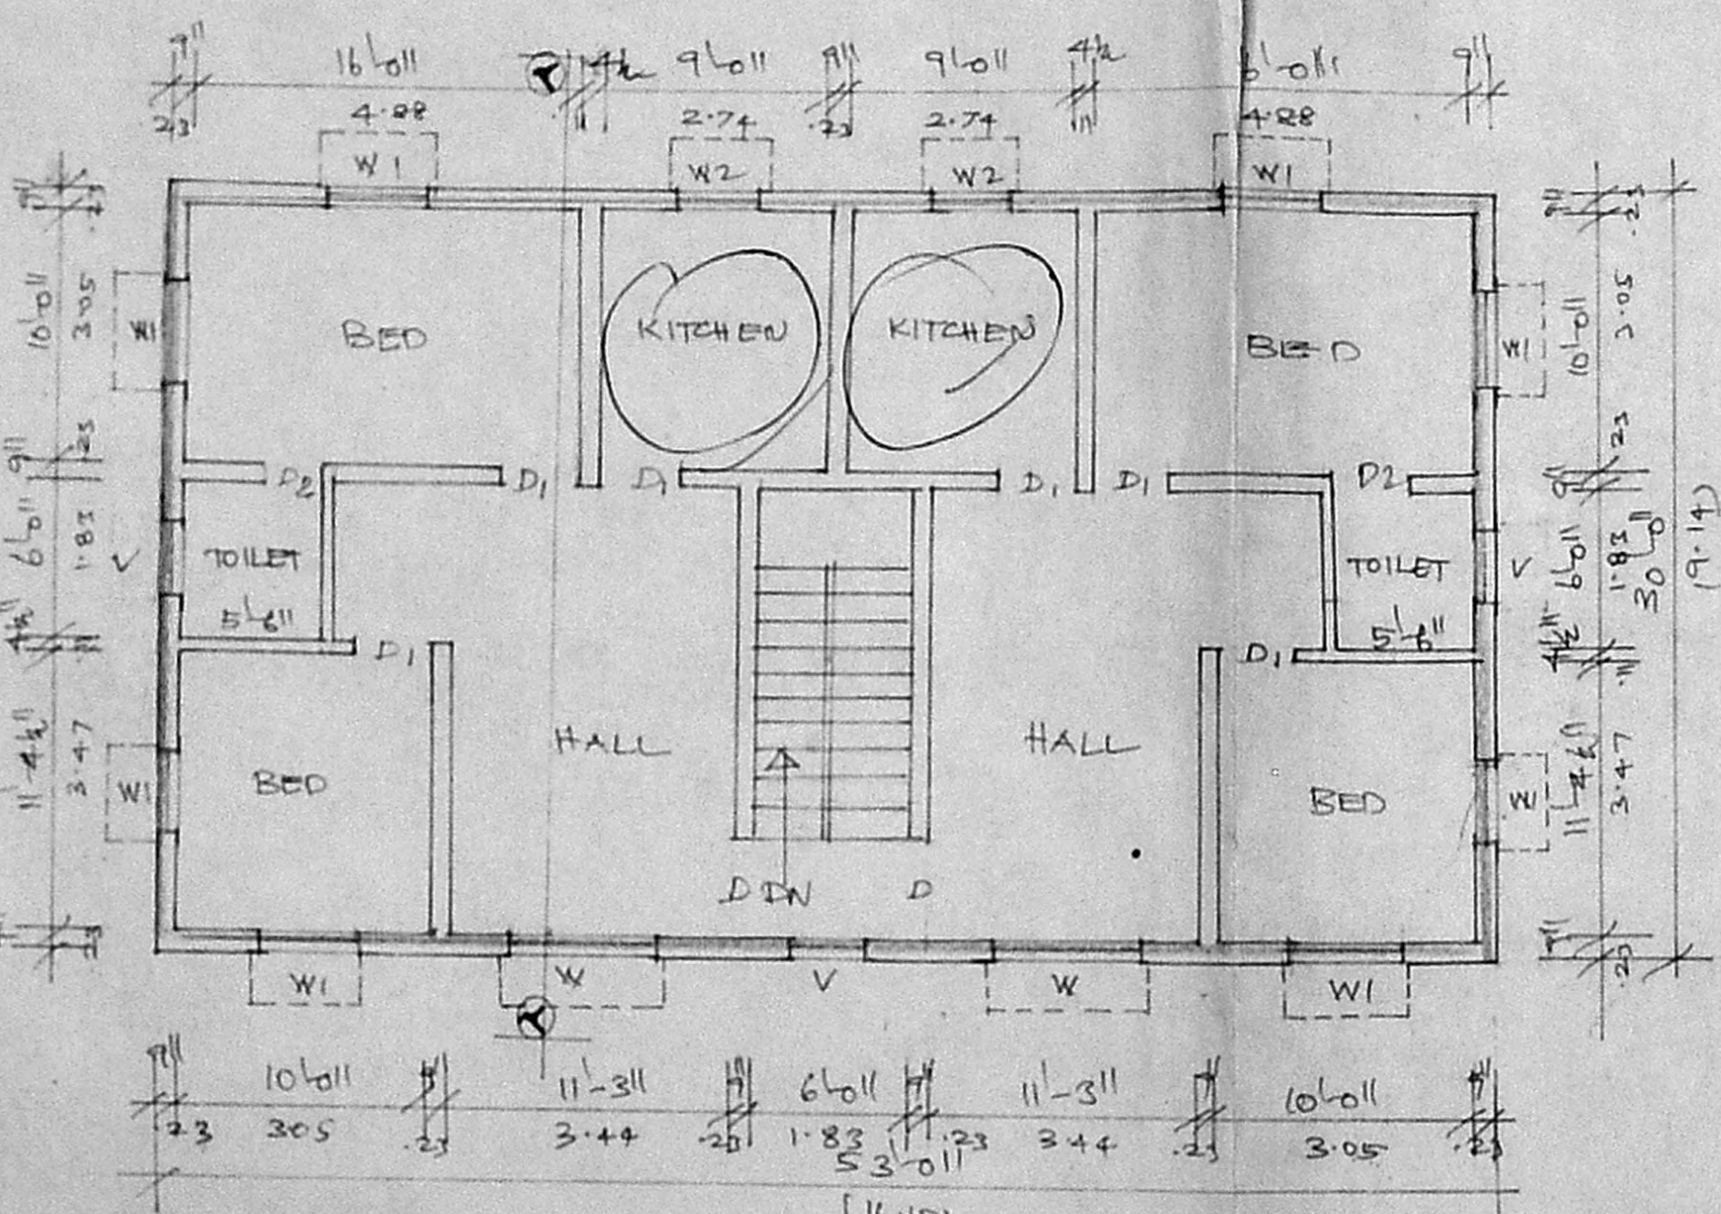 9" 16'-0" 4½ 9'-0" 9" 9'-0" 4½ 6'-0" 9"
.23 4.88 .11 2.74 .23 2.74 .11 4.88
W1 W2 W2 W1
9" .23 9" .23
10'-0" 3.05 W1 BED KITCHEN KITCHEN BED W1 10'-0" 3.05
9" .23 D2 D1 D1 D1 D1 D2 9" .23
6'-0" 1.83 V TOILET TOILET V 6'-0" 1.83 30'-0" (9.14)
5'-6" 5'-6"
4½" .11 D1 D1 4½" .11
HALL HALL
11'-4½" 3.47 W1 BED BED W1 11'-4½" 3.47
D DN D
.23 9" .23
W1 W V W W1
9" 10'-0" 9" 11'-3" 9" 6'-0" 9" 11'-3" 9" 10'-0" 9"
.23 3.05 .23 3.44 .23 1.83 .23 3.44 .23 3.05 .23
53'-0"